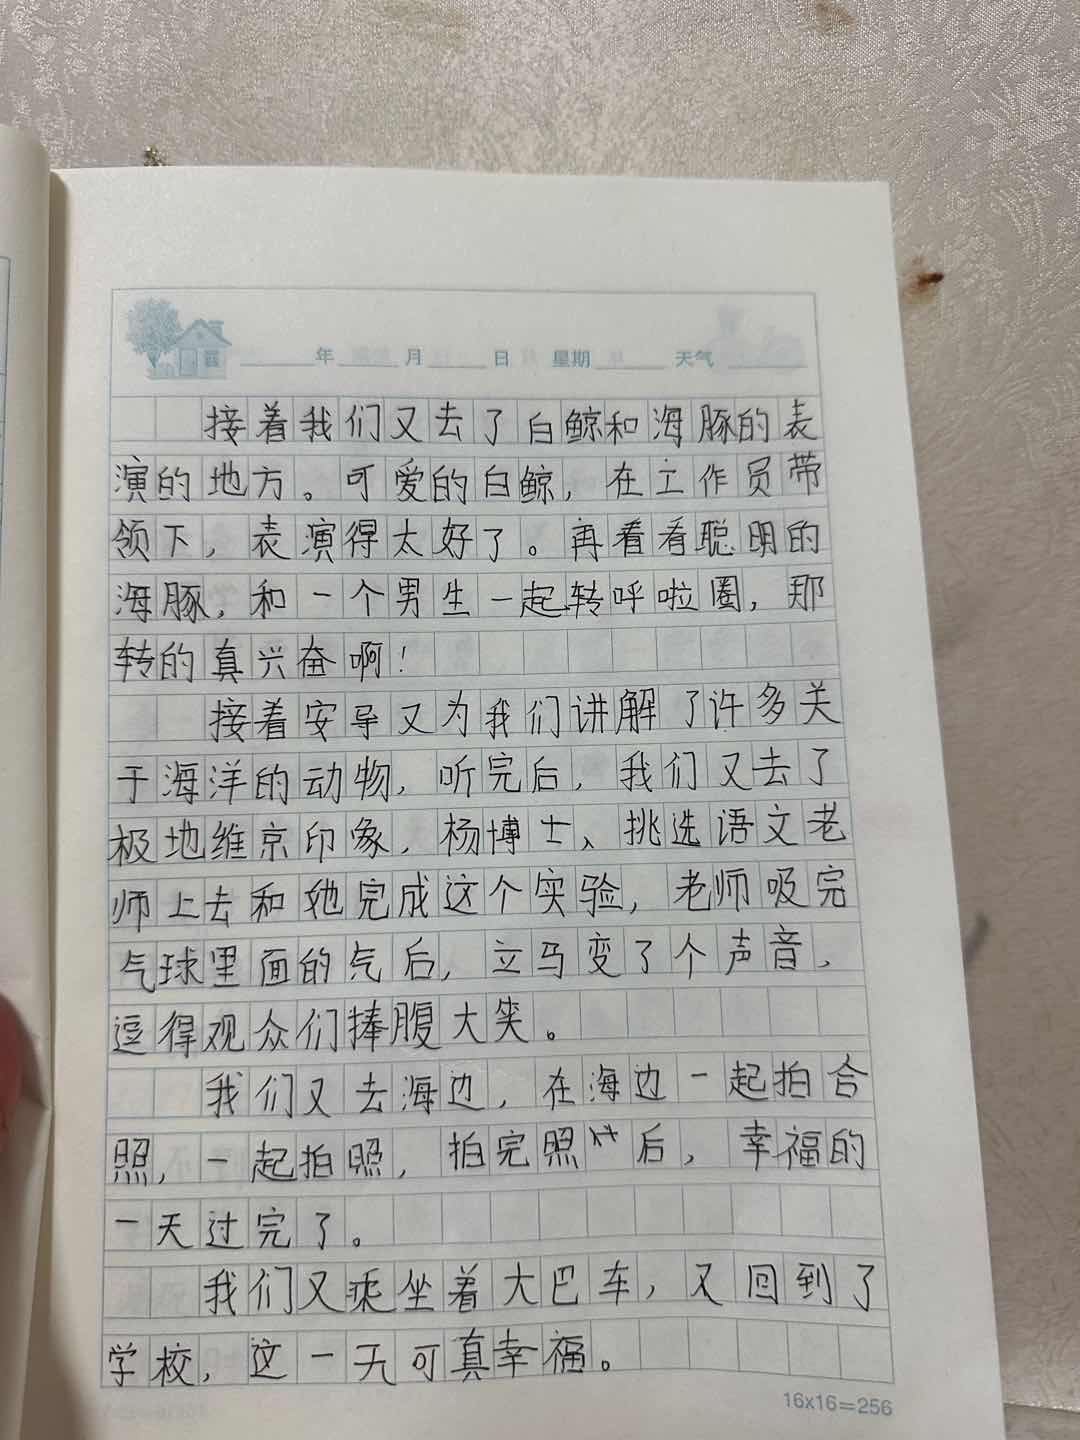 年 月 日 星期 天气
接着我们又去了白鲸和海豚的表
演的地方。可爱的白鲸，在工作员带
领下，表演得太好了。再看看聪明的
海豚，和一个男生一起转呼啦圈，那
转的真兴奋啊！
接着安导又为我们讲解了许多关
于海洋的动物，听完后，我们又去了
极地维京印象，杨博士、挑选语文老
师上去和她完成这个实验，老师吸完
气球里面的气后，立马变了个声音，
逗得观众们捧腹大笑。
我们又去海边，在海边一起拍合
照，一起拍照，拍完照后，幸福的
一天过完了。
我们又乘坐着大巴车，又回到了
学校，这一天可真幸福。
16x16=256